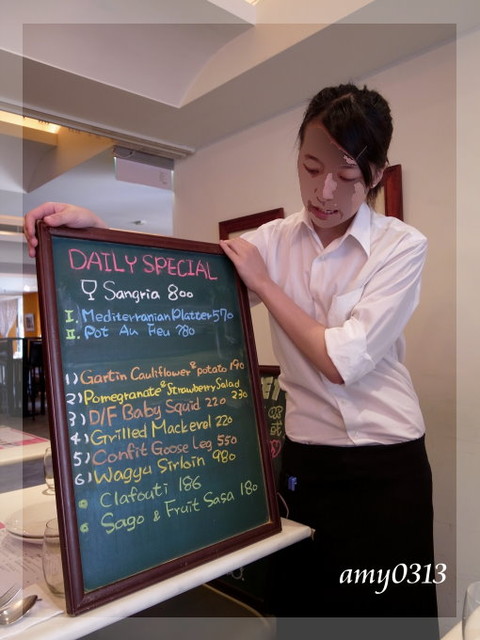 DAILY SPECIAL
Sangria 800
I. Mediterranian Platter 570
II. Pot Au Feu 780
1) Gartin Cauliflower & potato 190
2) Pomegranate & Strawberry Salad 230
3) D/F Baby Squid 220
4) Grilled Mackerel 220
5) Confit Goose Leg 550
6) Wagyu Sirloin 980
Clafouti 186
Sago & Fruit Sasa 180
amy0313